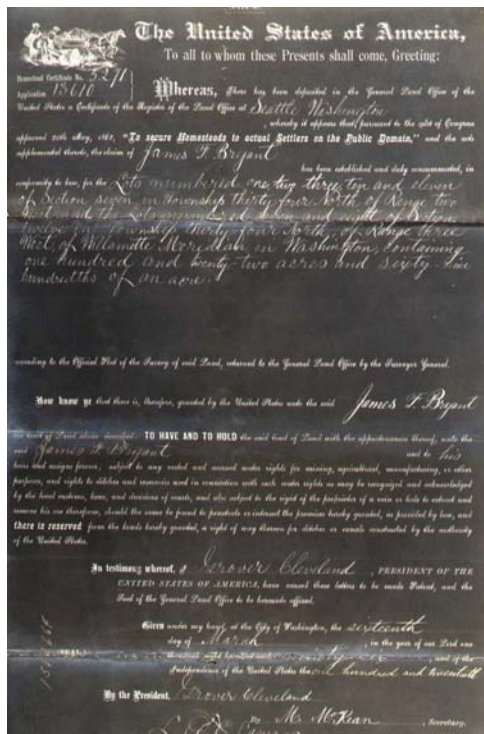 The United States of America,
To all to whom these Presents shall come, Greeting:
Homestead Certificate No. 5271
Application 13610
Whereas, There has been deposited in the General Land Office of the
United States a Certificate of the Register of the Land Office at Seattle Washington
, whereby it appears that pursuant to the Act of Congress
approved 20th May, 1862, "To secure Homesteads to actual Settlers on the Public Domain," and the acts
supplemental thereto, the claim of James F. Bryant
has been established and duly consummated, in
conformity to law, for the Lots numbered one two three ten and eleven
of Section seven in Township thirty-four North of Range two
West and the Lots numbered seven and eight of Section
twelve in Township thirty-four North, of Range three
West of Willamette Meridian in Washington, containing
one hundred and twenty-two acres and sixty-nine
hundredths of an acre.
according to the Official Plat of the Survey of said Land, returned to the General Land Office by the Surveyor General.
Now know ye that there is, therefore, granted by the United States unto the said James F. Bryant
the tract of Land above described: TO HAVE AND TO HOLD the said tract of Land with the appurtenances thereof, unto the
said James F. Bryant and to his
heirs and assigns forever; subject to any vested and accrued water rights for mining, agricultural, manufacturing, or other
purposes, and rights to ditches and reservoirs used in connection with such water rights as may be recognized and acknowledged
by the local customs, laws, and decisions of courts, and also subject to the right of the proprietor of a vein or lode to extract and
remove his ore therefrom, should the same be found to penetrate or intersect the premises hereby granted, as provided by law, and
there is reserved from the lands hereby granted, a right of way thereon for ditches or canals constructed by the authority
of the United States.
In testimony whereof, I Grover Cleveland, PRESIDENT OF THE
UNITED STATES OF AMERICA, have caused these letters to be made Patent, and the
Seal of the General Land Office to be hereunto affixed.
Given under my hand, at the City of Washington, the sixteenth
day of March, in the year of our Lord one
thousand eight hundred and ninety six, and of the
Independence of the United States the one hundred and twentieth
By the President, Grover Cleveland
By M. McKean, Secretary.